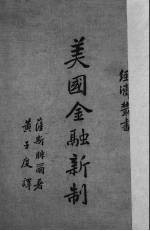 經濟叢書
美國金融新制
薩斯

黃子度譯